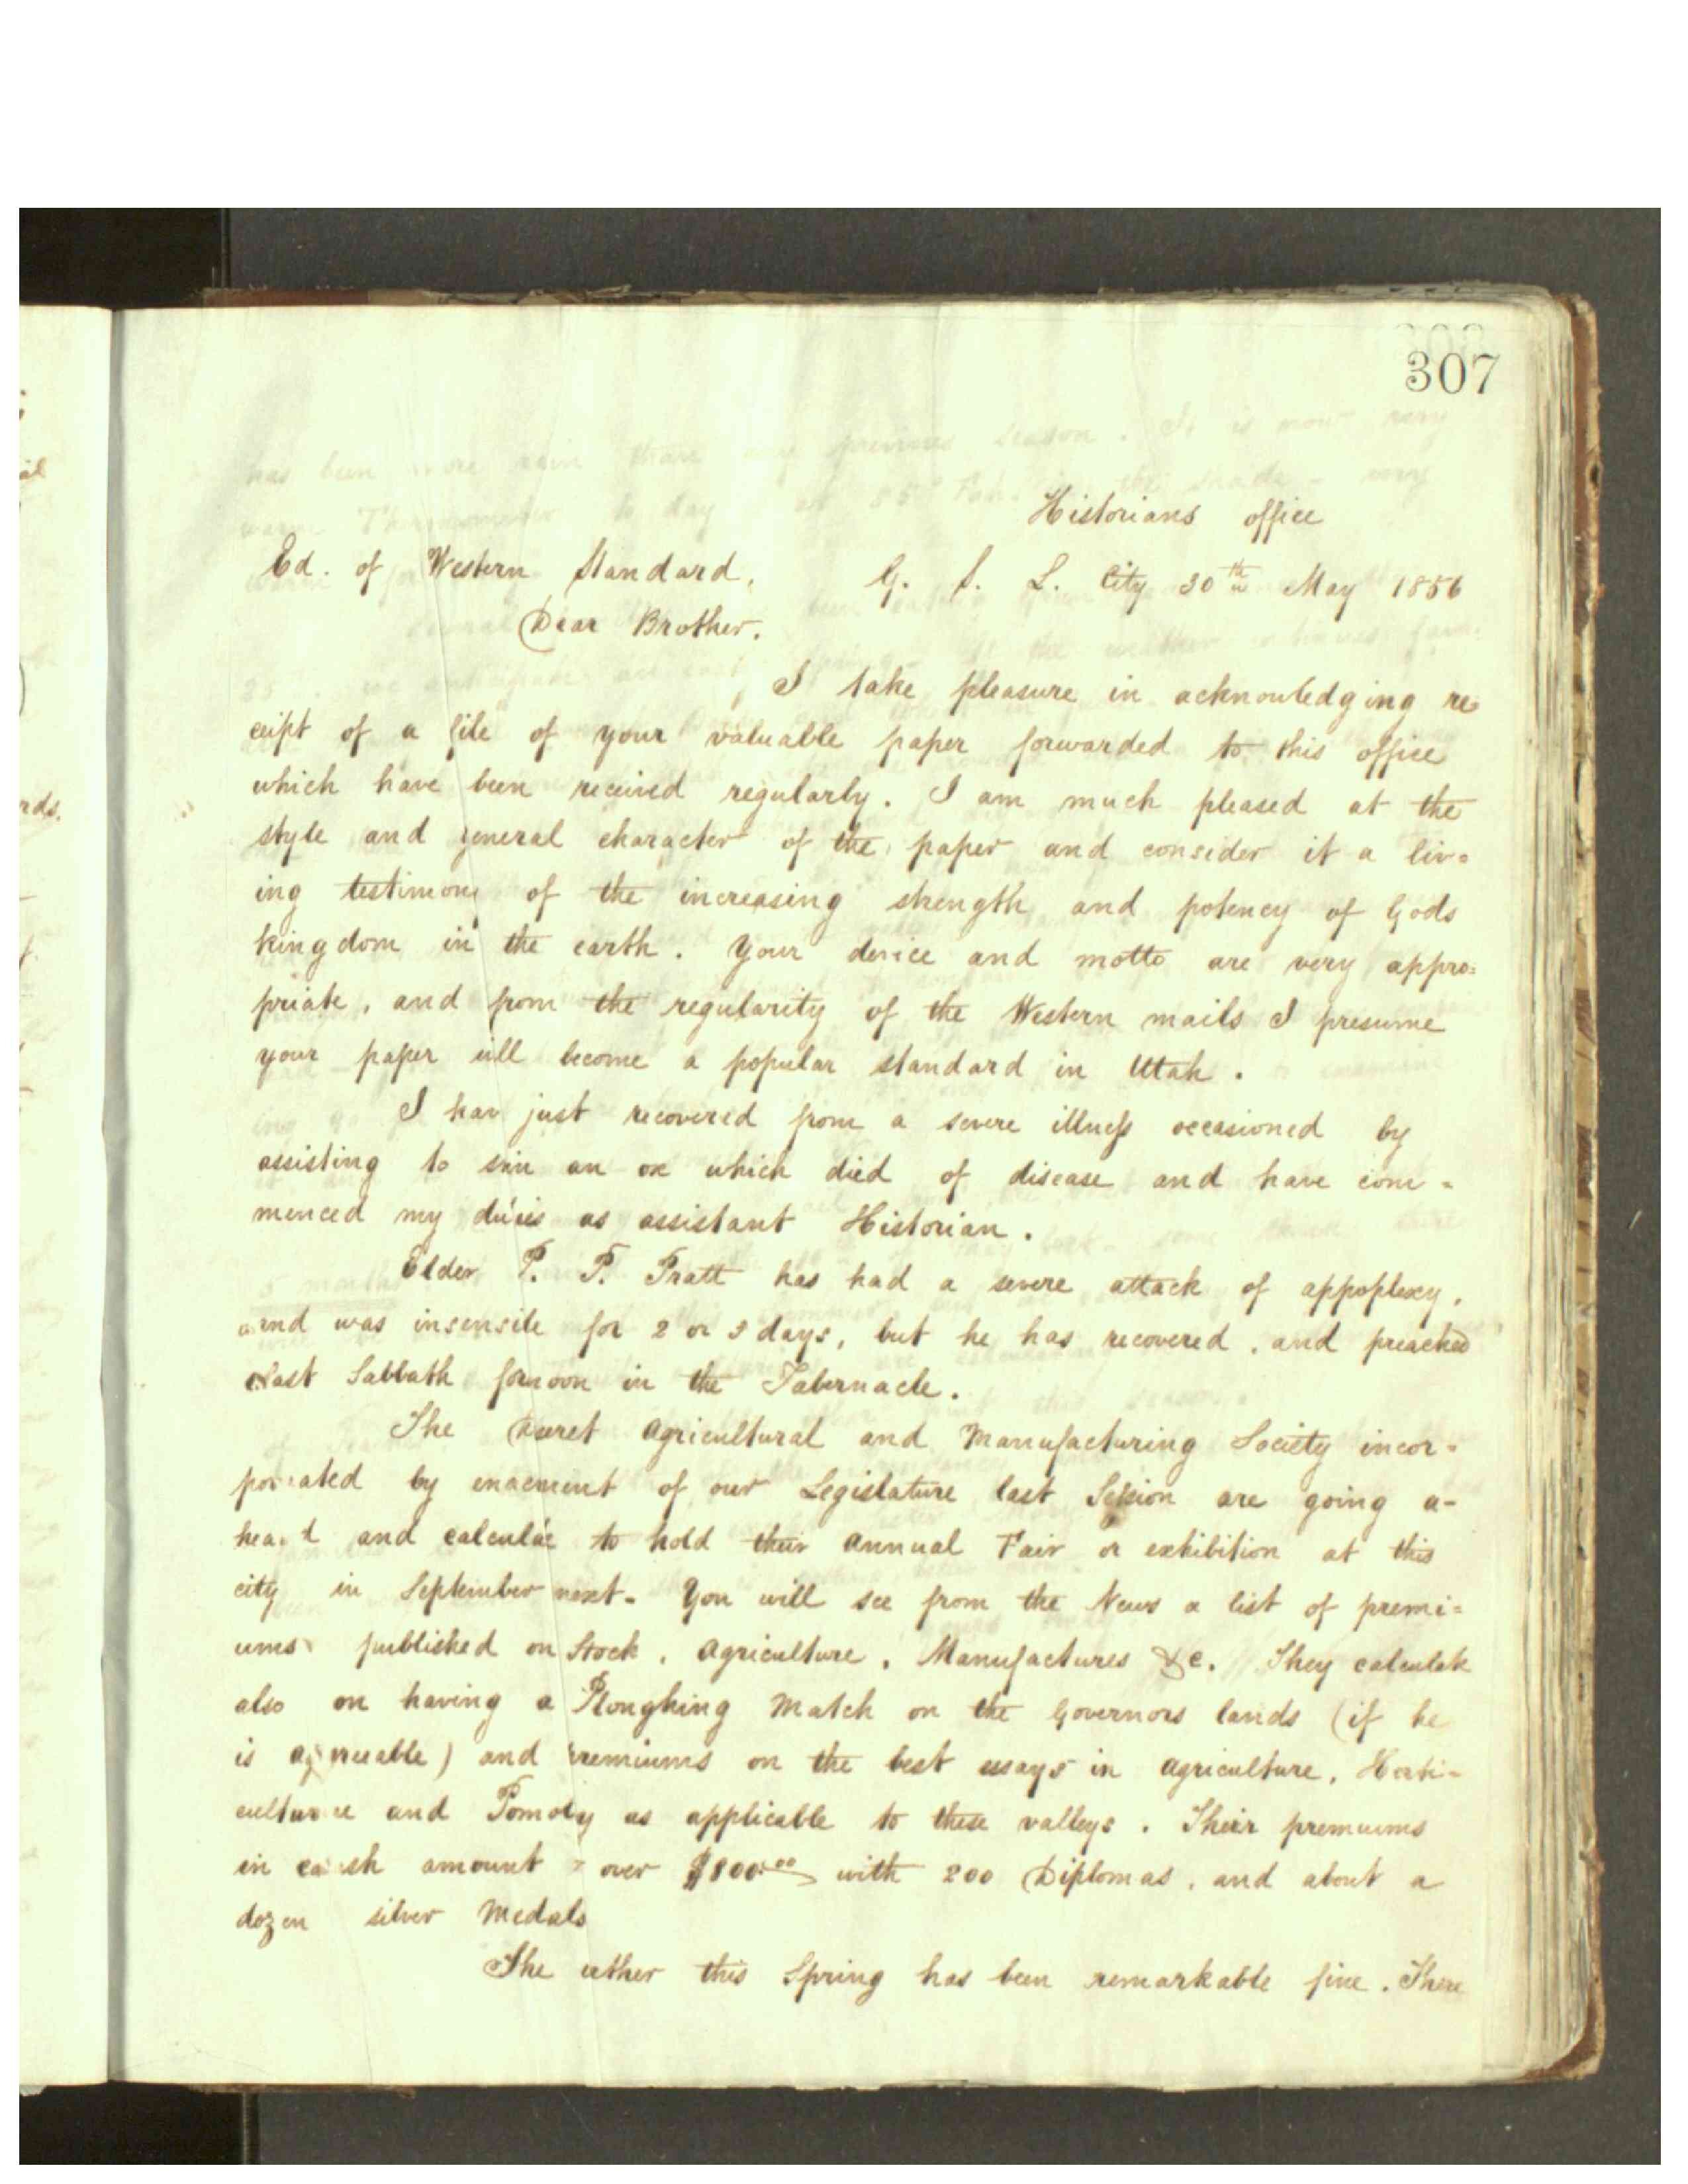 307
Historians office
Ed. of Western Standard. G. S. L. City 30th May 1856
Dear Brother.
I take pleasure in acknowledging re=
ceipt of a file of your valuable paper forwarded to this office
which have been received regularly. I am much pleased at the
style and general character of the paper and consider it a liv=
ing testimony of the increasing strength and potency of Gods
kingdom in the earth. Your device and motto are very appro=
priate, and from the regularity of the Western mails I presume
your paper will become a popular standard in Utah.
I hav just recovered from a severe illness occasioned by
assisting to skin an ox which died of disease and have com=
menced my duties as assistant Historian.
Elder P. P. Pratt has had a severe attack of appoplexy,
and was insensile for 2 or 3 days, but he has recovered, and preached
last Sabbath fornoon in the Tabernacle.
The Deseret Agricultural and Manufacturing Society incor=
porated by enacment of our Legislature last Session are going a-
head and calculate to hold their Annual Fair or exhibition at this
city in September next. You will see from the News a list of premi=
ums published on Stock, Agriculture, Manufactures &c. They calculate
also on having a Ploughing Match on the Governors lands (if he
is agreeable) and premiums on the best essays in Agriculture, Horti-
culture and Pomoly as applicable to these valleys. Their premiums
in cash amount over $800.00 with 200 Diplomas, and about a
dozen silver Medals
The wether this Spring has been remarkable fine. There